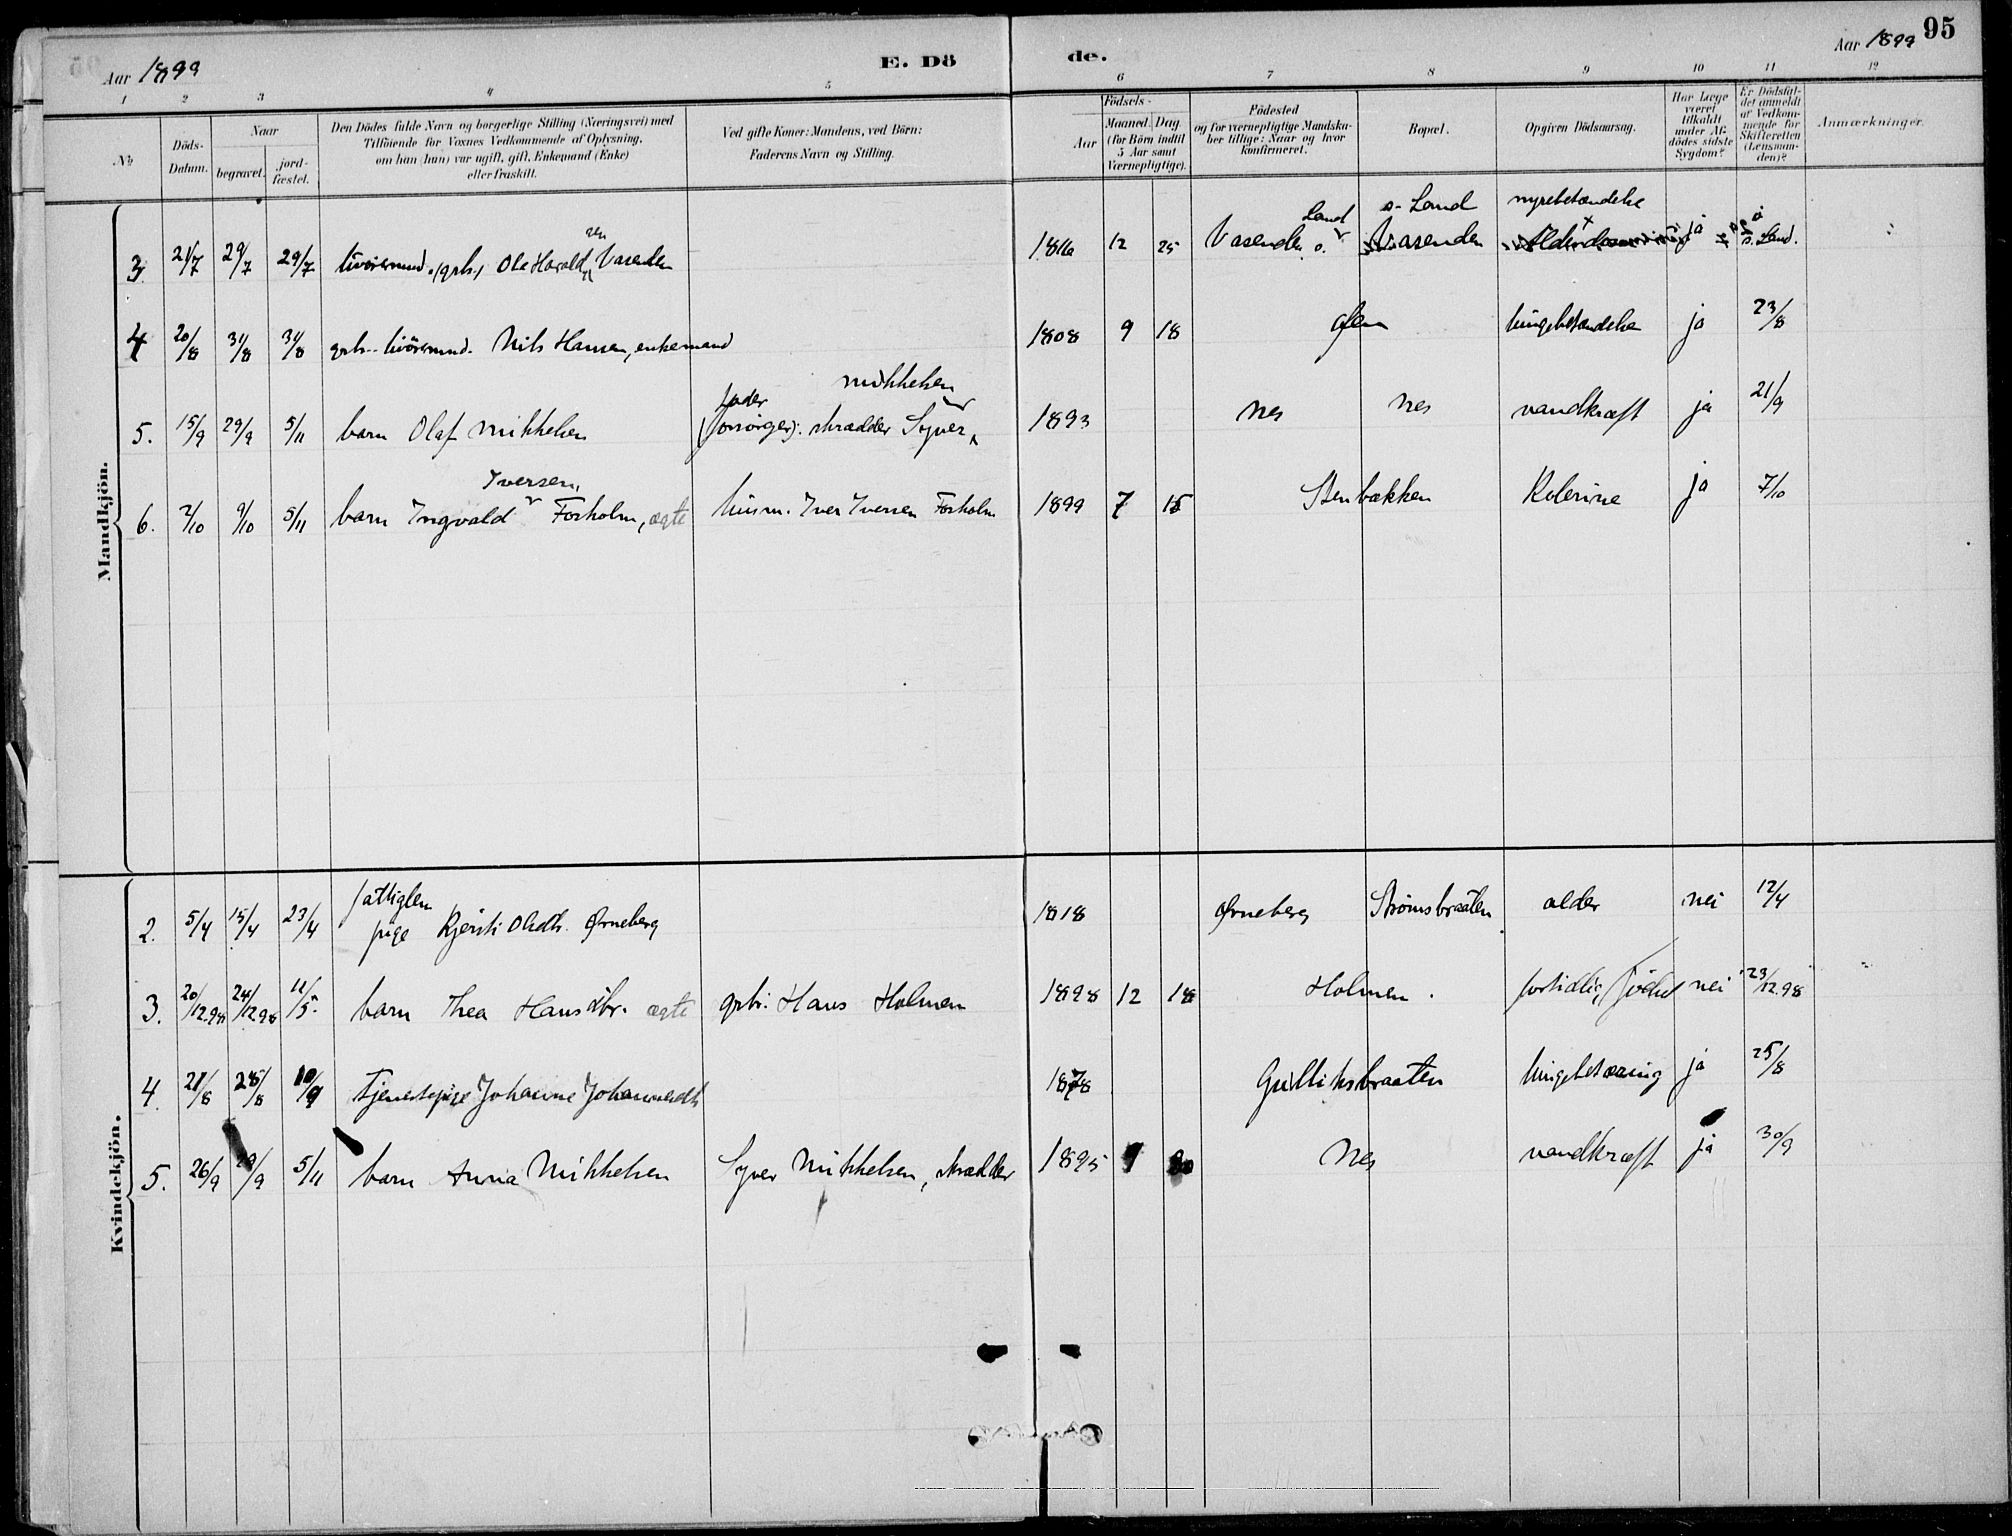 Aar 1899 E. Dö de. Aar 1899 95
1 2 3 4 5 6 7 8 9 10 11 12
No
Döds-Datum.
Naar
begravet. jordfæstet.
Den Dödes fulde Navn og borgerlige Stilling (Næringsvei) med
Tilföiende for Voxnes Vedkommende af Oplysning,
om han (hun) var ugift, gift, Enkemand (Enke)
eller fraskilt.
Ved gifte Koner: Mandens, ved Börn:
Faderens Navn og Stilling.
Födsels-
Aar Maaned. Dag.
(for Börn indtil
5 Aar samt
Værnepligtige).
Födested
og for værnepligtige Mandska-
ber tillige: Naar og hvor
konfirmeret.
Bopæl.
Opgiven Dödsaarsag.
Har Læge
været
tilkaldt
under Af-
dödes sidste
Sygdom?
Er Dödsfal-
det anmeldt
af Vedkom-
mende for
Skifteretten
(Lensman-
den)?
Anmærkninger.
Mandkjön.
sen Land s. Land nyrebetændelse
3. 21/7 29/7 29/7 Ola Harald Vasenden 1816 12 25 Vasenden s. Vasenden ja s. Land.
4 20/8 31/8 31/8 Nils Hansen, enkemand 1808 9 18 lungebetændelse ja 23/8
fader Mikkelsen
5. 15/9 29/9 5/11 barn Olaf Mikkelsen (forsörger): skrædder Syver 1893 Nes Nes vandkræft ja 21/9
Iversen,
6. 2/10 9/10 5/11 barn Ingvald Forholm, ægte husm. Iver Iversen Forholm 1899 7 15 Stenbakken Kolerine ja 7/10
Kvindekjön.
fattiglem
2. 5/4 15/4 23/4 pige Kjersti Olsdtr. Ørneberg 1818 Ørneberg Strömsbraaten alder nei 12/4
3. 20/12.98 24/12.98 11/5. barn Thea Hansdtr. ægte grbr. Hans Holmen 1898 12 18 Holmen. fortidlig född nei 23/12.98
4. 21/8 28/8 10/9 Tjenestepige Johanne Johannesdtr 1878 Gulliksbraaten lungetæring ja 25/8
5. 26/9 29/9 5/11 barn Anna Mikkelsen Syver Mikkelsen, skrædder 1895 9 20 Nes vandkræft ja 30/9